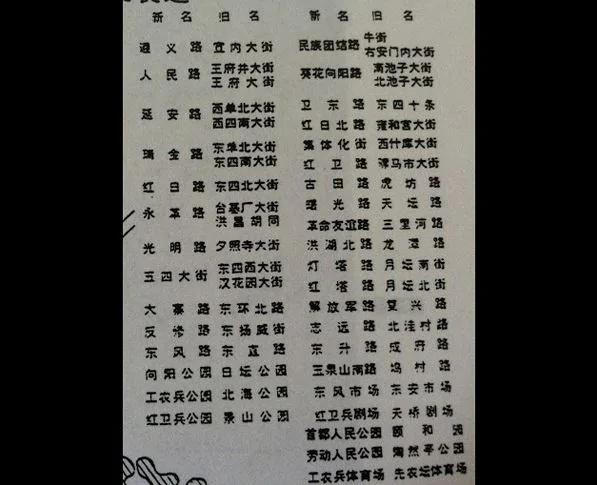 新名 旧名
遵义路 宣内大街
人民路 王府井大街
王府大街
延安路 西单北大街
西四南大街
瑞金路 东单北大街
东四南大街
红日路 东四北大街
永革路 台基厂大街
洪昌胡同
光明路 夕照寺大街
五四大街 东四西大街
汉花园大街
大寨路 东环北路
反修路 东扬威街
东风路 东直路
向阳公园 日坛公园
工农兵公园 北海公园
红卫兵公园 景山公园
新名 旧名
民族团结路 牛街
右安门内大街
葵花向阳路 南池子大街
北池子大街
卫东路 东四十条
红日北路 雍和宫大街
集体化街 西什库大街
红卫路 骡马市大街
古田路 虎坊路
曙光路 天坛路
革命友谊路 三里河路
洪湖北路 龙潭路
灯塔路 月坛南街
红塔路 月坛北街
解放军路 复兴路
志远路 北洼村路
东升路 成府路
玉泉山南路 坞村路
东风市场 东安市场
红卫兵剧场 天桥剧场
首都人民公园 颐和园
劳动人民公园 陶然亭公园
工农兵体育场 先农坛体育场